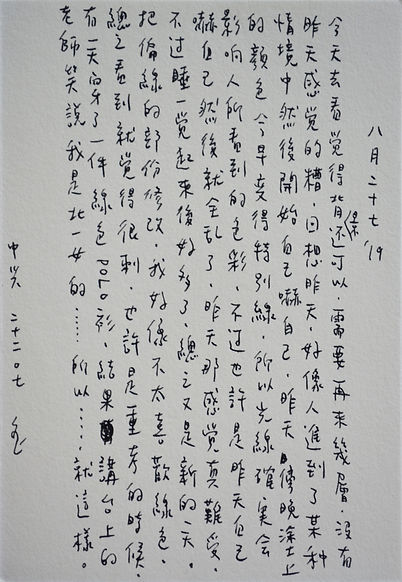 八月二十七 '19
今天去看覺得背景还可以,需要再來幾層沒有
昨天感覺的糟,回想昨天,好像人進到了某种
情境中然後開始自己嚇自己,昨天傍晚塗上
的顏色今早變得特別綠,所以光線確実会
影响人所看到的色彩,不过也許是昨天自己
嚇自己然後就全乱了,昨天那感覺真難受,
不过睡一覺起來後好多了,總之又是新的一天。
把偏綠的部份修改,我好像不太喜歡綠色,
總之看到就覺得很刺,也許是重考的時候,
有一天穿了一件綠色POLO衫,結果講台上的
老師笑說我是北一女的……所以……就這樣。
中 二十二:〇七